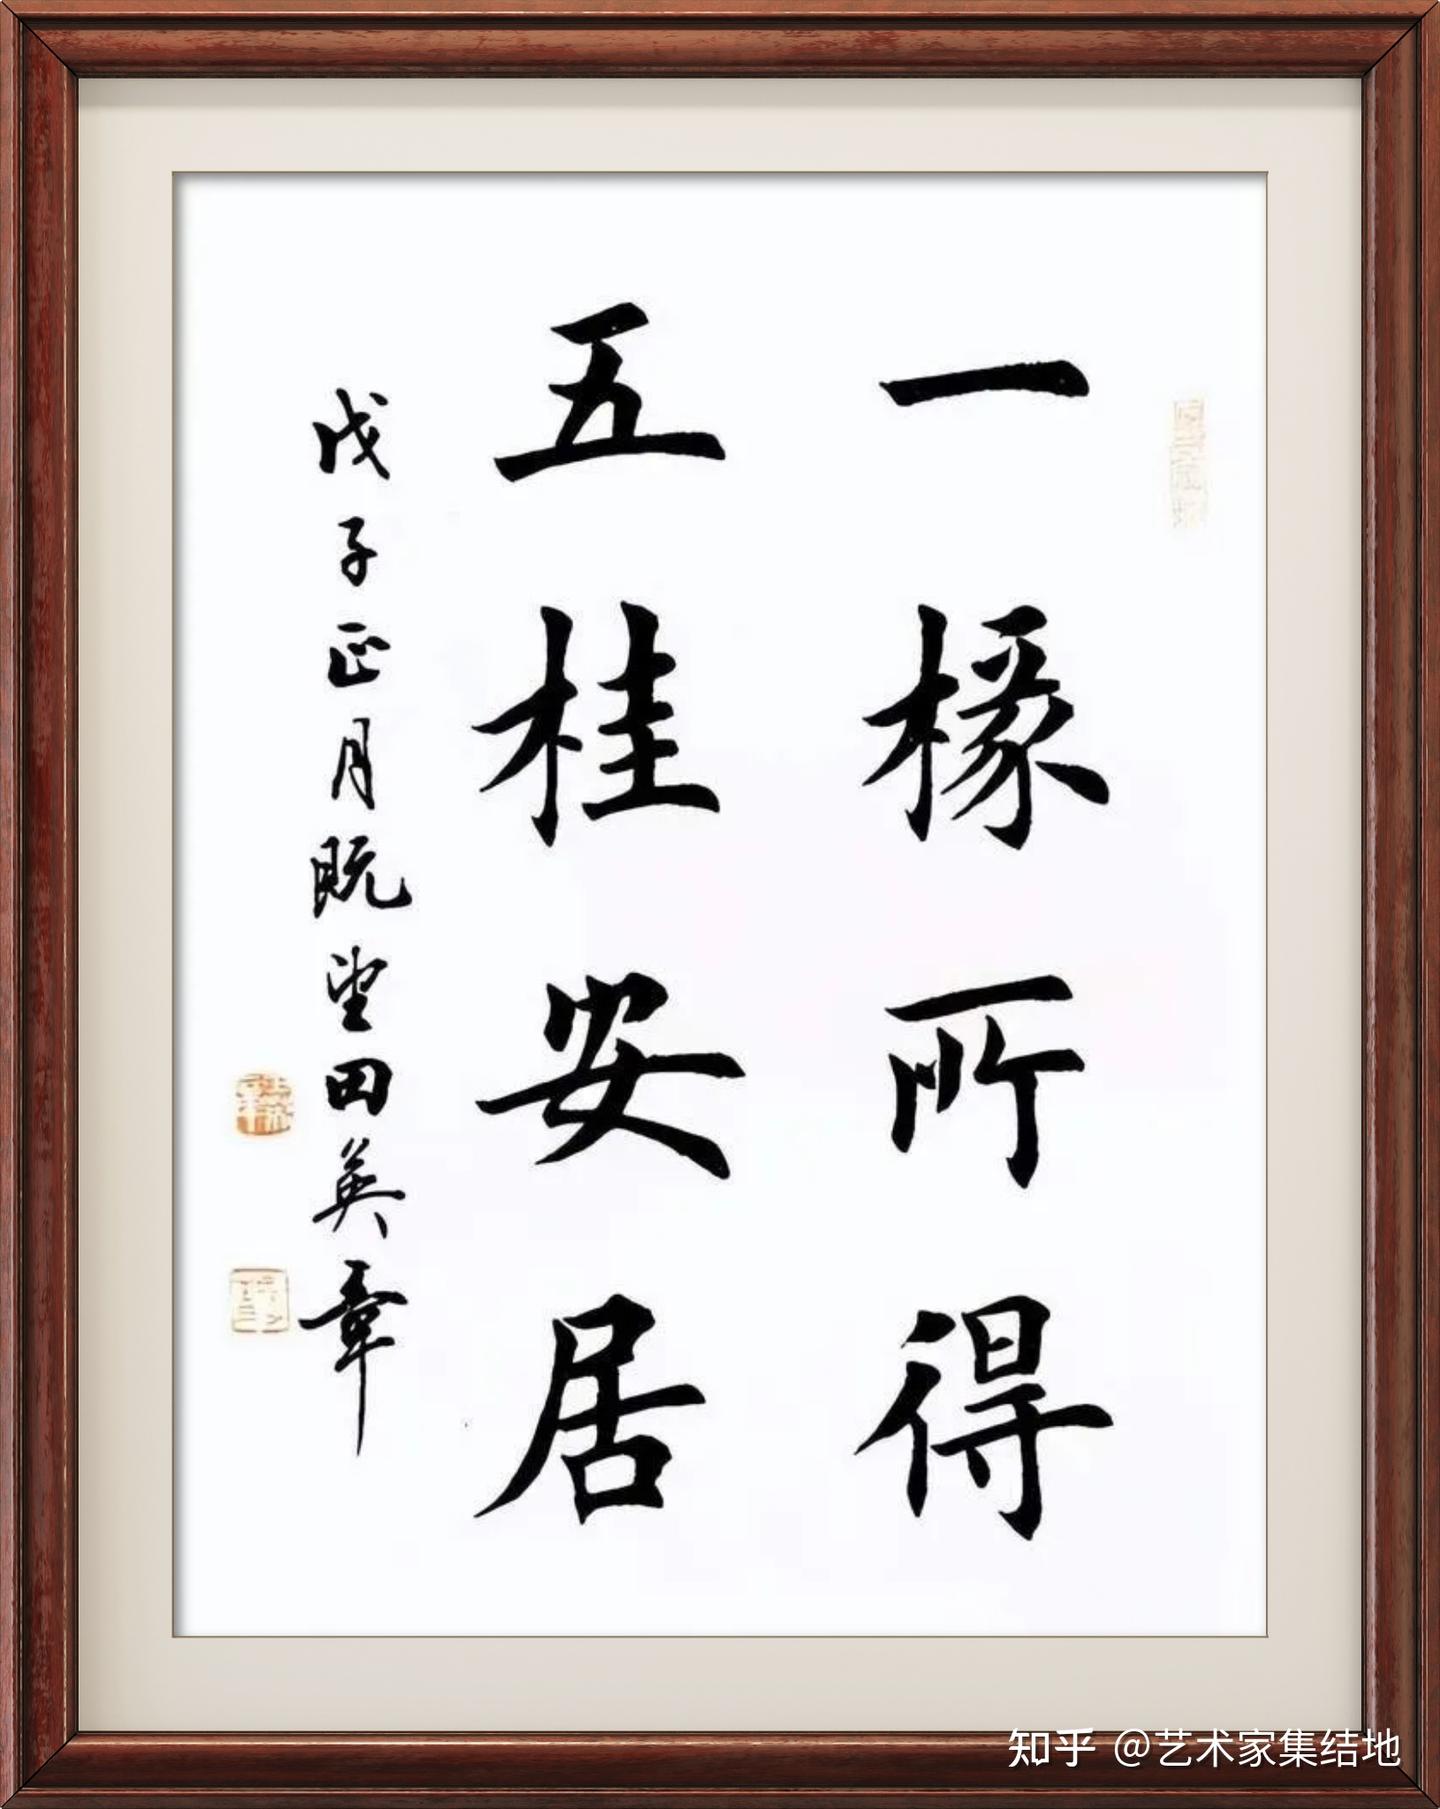 一椽所得
五桂安居
戊子正月既望田英章
知乎 @艺术家集结地